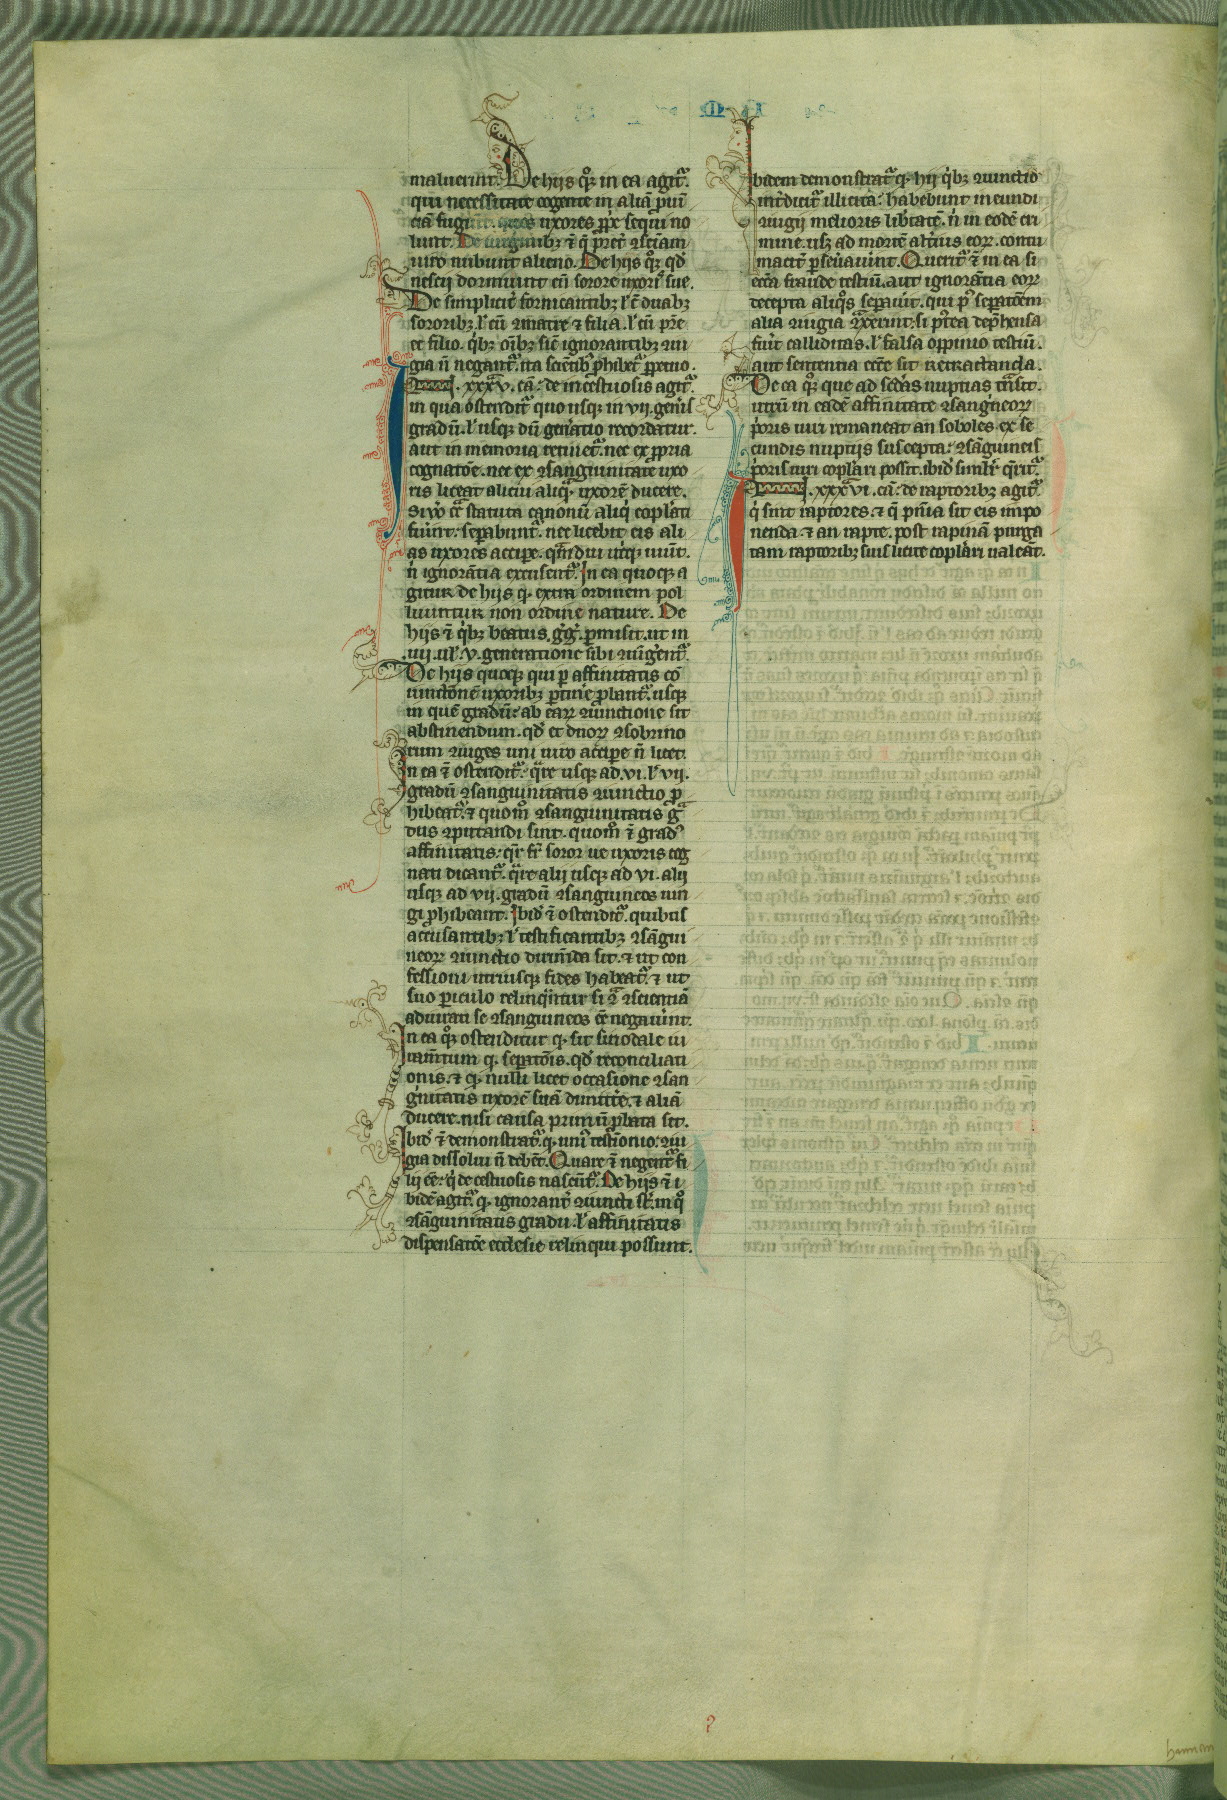 maluerint. De hijs q̊ꝫ in ea agit᷑.
qui necessitate cogente in aliā ꝓuī
ciā fugiūt. uxores ꝓpꝫ sequi no
lunt. De uirginibꝫ ⁊̄ q̄ p̄ter ꝯsciām
uiro nubunt alieno. De hijs q̊ꝫ qd̓
nescii dormiunt cū sorore uxoris sue.
De simplicit̓ fornicantibꝫ l̓ cū duabꝫ
sororibꝫ. l̓ cū matre ⁊ filia. l̓ cū pr̄e
et filio. q̓bꝫ oīibꝫ sic̄ ignorantibꝫ ꝯiu
gia n̄ negant᷑. ita scientibꝫ ꝓhibet᷑
.xxxv. cā. de incestuosis agit᷑
in qua ostendit᷑ quo usqꝫ in vii. gen̓is
gradū. l̓ usqꝫ dū gen̓atio recordatur.
aut in memoria retinet᷑. nec ex ꝓpria
cognatōe. nec ex ꝯsanguinitate uxo
ris liceat alicui aliq̄. uxorē ducere.
Si u̓o ꝯt̄ statuta canonū aliq̓ copulati
fuīnt. sepabunt᷑. nec licebit eis ali
as uxores accipe. q̄mdiu ut̓qꝫ uiuūt.
n̄ ignorātia excusent᷑. In ea quoqꝫ a
gitur de hijs q̓. extra ordinem pol
luuntur non ordine nature. De
hijs ⁊̄ q̓bꝫ beatus. g̓g̓. ꝑmisit. ut in
.iiii. ul̓. v. generatione sibi ꝯiūgent᷑.
De hijs quoqꝫ qui ꝑ affinitatis cō
iunctōnē uxoribꝫ usqꝫ
in quē gradū. ab earꝝ ꝯiunctione sit
abstinendum. qd̓ et duorꝝ ꝯsobrino
rum ꝯiuges uni uiro accipe n̄ licet.
In ea ⁊̄ ostendit᷑. quare usqꝫ ad. vi. l̓ vii.
gradū ꝯsanguinitatis ꝯiunctio ꝓ
hibeat᷑. ⁊ quom̄ ꝯsanguinitatis g̊
dus ꝯputandi sint. quom̄ ⁊̄ grad᷒
affinitatis. q̄r fr̄ soror ue uxoris cog
nati dicant᷑. quare alij usqꝫ ad vi. alij
usqꝫ ad vii. gradū ꝯsanguineos iun
gi ꝓhibeant. Ibid̓ ⁊̄ ostendit᷑. quibus
accusantibꝫ l̓ testificantibꝫ ꝯsāgui
neorꝫ ꝯiunctio dirimēda sit. ⁊ ut con
fessioni utriusqꝫ fides habeat᷑. ⁊ ut
suo ꝑiculo relinq̄ntur si ꝯt̄ ꝯscientiā
adiurati se ꝯsanguineos eē negauīnt.
In ea q̊ꝫ ostenditur q̓. sit sinodale iu
ram̄tum q̓. seꝑatōis. qd̓ reconciliati
onis. ⁊ q̓. nulli licet occasione ꝯsan
g̓nitatis uxorē suā dimitte. ⁊ aliā
ducere. nisi causa primū ꝓlata set.
Ibid̓ ⁊̄ demonstrat᷑. q̓. uni᷒ testimonio. ꝯiu
gia dissolui n̄ debēt. Quare ⁊̄ negent᷑ fi
lij eē. q̓ de cestuosis nascūt᷑. De hijs ⁊̄ i
bidē agit᷑. q̓. ignorant̓ ꝯiuncti st̄. in q̊
ꝯsāguinitatis gradu. l̓ affinitatis
dispensatōe ecclesie relinqui possunt.
Ibidem demonstrat᷑ q̓. hij q̓bꝫ ꝯiunctio
int̓dicit᷑ illicita. habebunt ineundi
ꝯiugij melioris lib̓tatē. n̄ in eodē cri
mine. usꝫ ad mortē alt̓ius eorꝝ. contu
macit̓ ꝑseuauīnt. Querit᷑ ⁊̄ in ea si
eccīa fraude testiū. aut ignorātia eorꝝ
decepta aliq̊s seꝑauit. qui p᷒ seꝑatōem
alia ꝯiugia ꝯt̄xerint. si p᷒tea dep̄hensa
fuīt calliditas. l̓ falsa oppinio testiū.
aut sententia eccīe sit retractanda.
De ea q̊ꝫ que ad scd̄as nuptias trāsit.
utrū in eadē affinitate ꝯsanguineorꝝ
p̓oris uiri remaneat an soboles. ex se
cundis nuptijs suscepta. ꝯsāguineis
p̓oris uiri copulari possit. ibid̓ simīlr̄ q̄rit᷑.
.xxxvi. cā. de raptoribꝫ agit᷑.
q̓ sint raptores. ⁊ q̄ pn̄ia sit eis impo
nenda. ⁊ an rapte. post rapinā purga
tam raptoribꝫ suis licite copulari ualeāt.